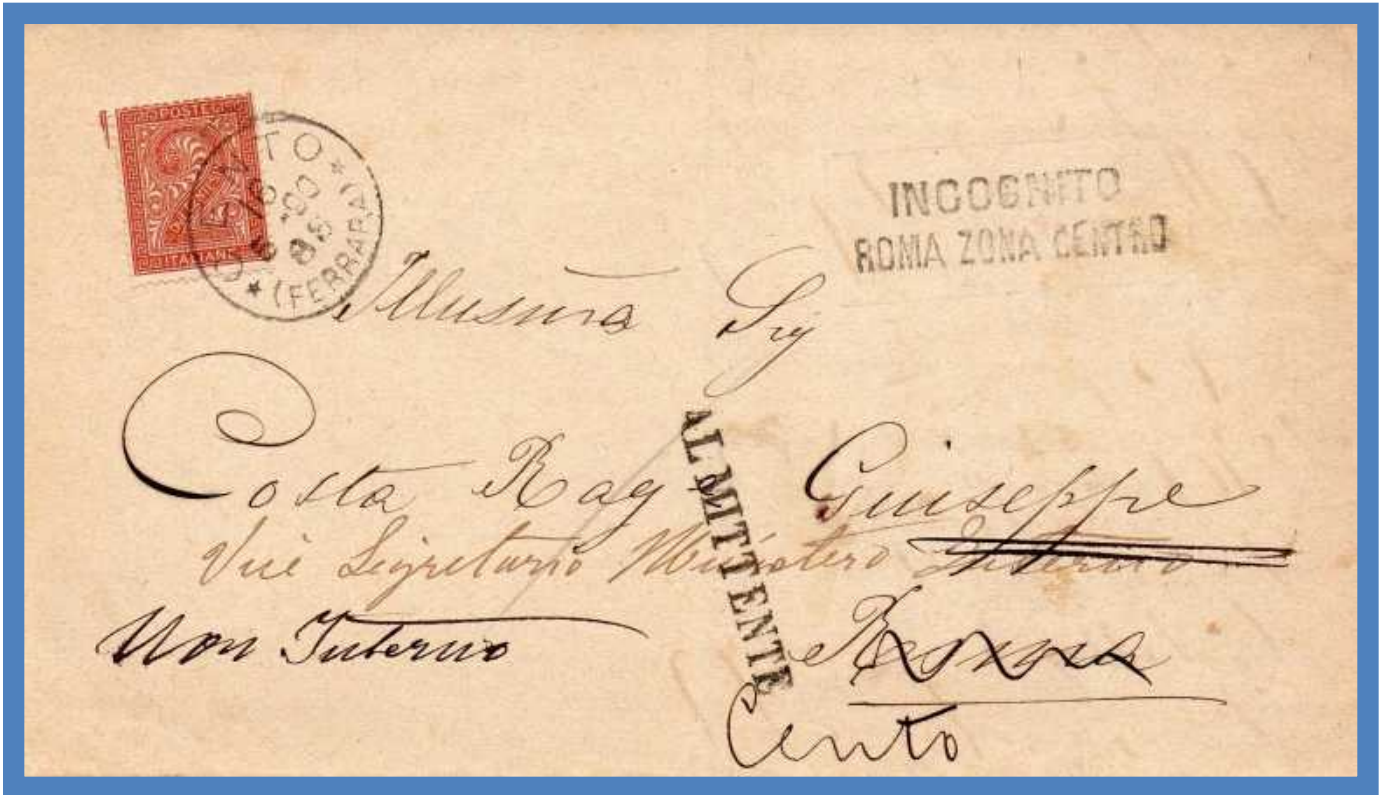 POSTE
2
ITALIANE
CENTO
(FERRARA)
INCOGNITO
ROMA ZONA CENTRO
Illusma Sig
AL MITTENTE
Costa Rag Giuseppe
Vice Segretario Ministero Interno
Non Interno
Roma
Cento